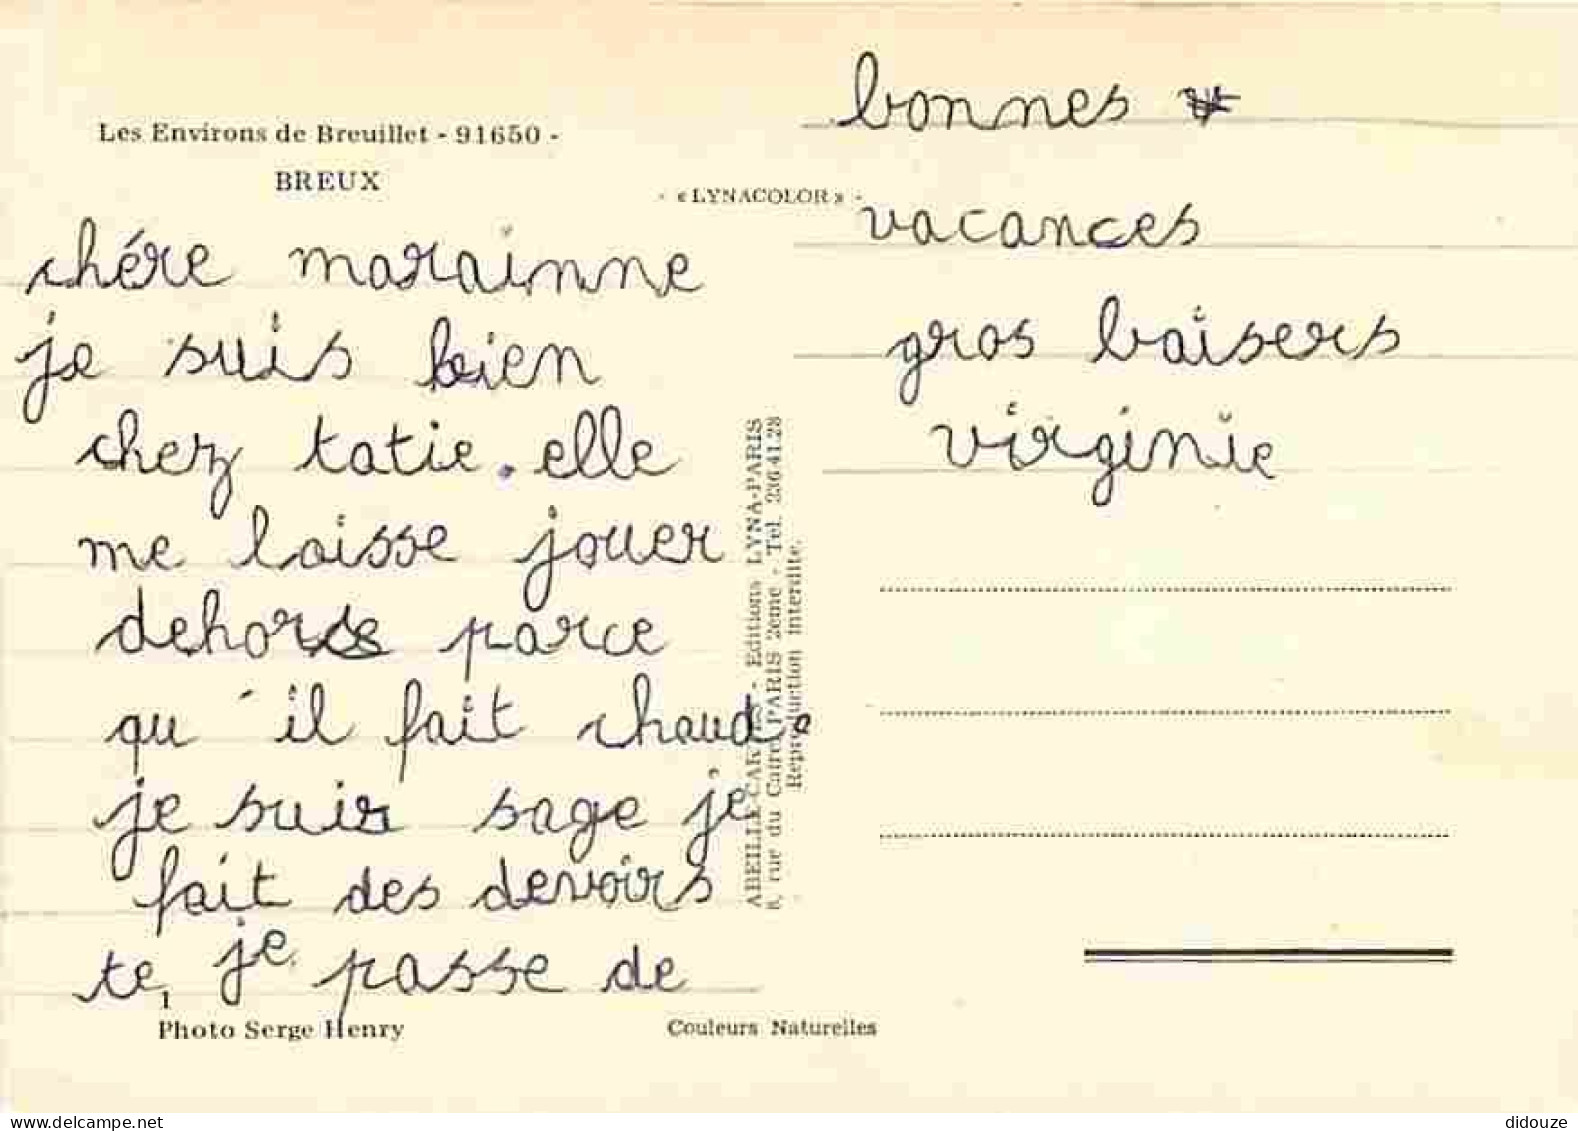 Les Environs de Breuillet - 91650 -
BREUX
- « LYNACOLOR » -
chére marainne
je suis bien
chez tatie. elle
me laisse jouer
dehors parce
qu'il fait chaud.
je suis sage je
fait des devoirs
te, je passe de
bonnes
vacances
gros baisers
virginie
ABEILLE-CARTES - Editions LYNA-PARIS
8, rue du Caire PARIS 2eme - Tél. 236.41.28
Reproduction interdite.
1
Photo Serge Henry
Couleurs Naturelles
delcampe.net
didouze